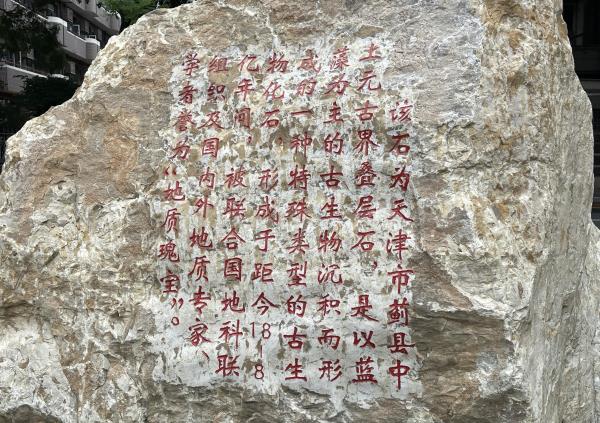 该石为天津市蓟县中
上元古界叠层石，是以蓝
藻为主的古生物沉积而形
成的一种特殊类型的古生
物化石，形成于距今18-8
亿年间，被联合国地科联
组织及国内外地质专家、
学者誉为“地质瑰宝”。